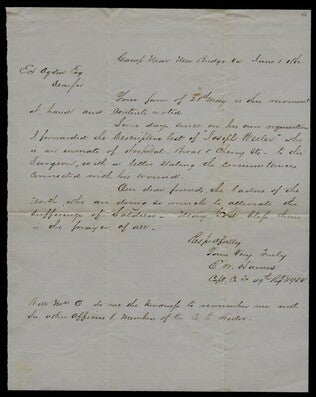 Camp Near New Bridge Va June 1st 1862
Ed Ogden Esq
Dear Sir
Your favr of 30th May is this moment
at hand and contents noted
Some days since on his own requisition
I forwarded the descriptive list of Joseph
is an inmate of Hospital Broad & Cherry Sts. to the
Surgeon, with a letter stating the circumstances
connected with his wound.
Our dear friends, the Ladies of the
North who are doing so much to alleviate the
sufferings of Soldiers. May God bless them
is the prayer of all.
Respectfully
Yours Very Truly
E. W.
Capt. Co 49th Regt
Will Mr O do me the kindness to remember me with
the other Officers & Members of the